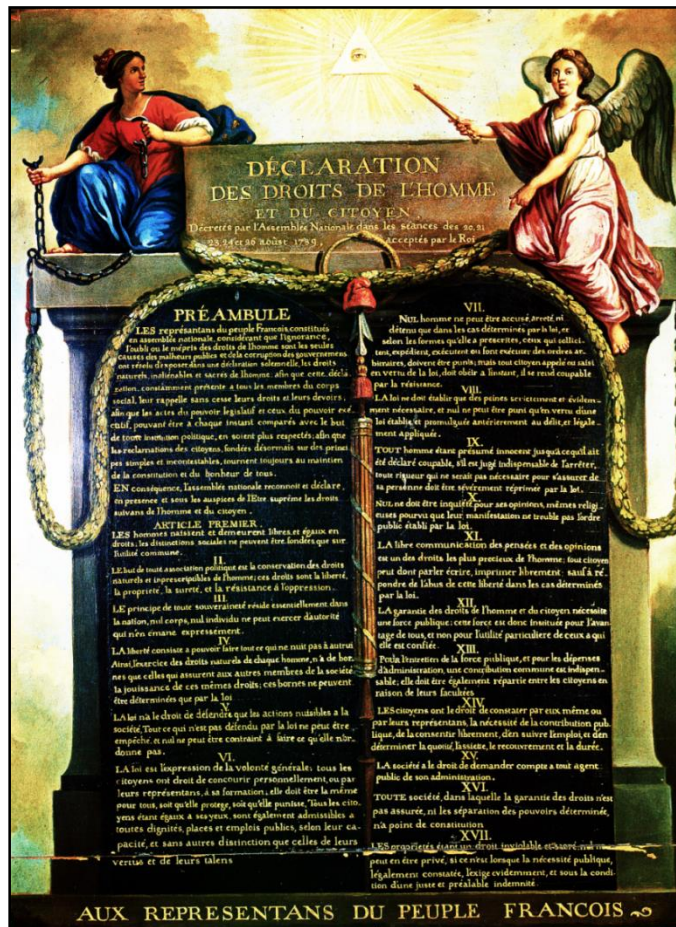 DÉCLARATION
DES DROITS DE L'HOMME
ET DU CITOYEN,
Décrétés par l'Assemblée Nationale dans les séances des 20, 21
23, 24 et 26 août 1789, acceptés par le Roi
PRÉAMBULE
LES représentans du peuple Francois, constitués
en assemblée nationale, considérant que l'ignorance,
l'oubli ou le mépris des droits de l'homme sont les seules
causes des malheurs publics et de la corruption des gouvernemens
ont résolu d'exposer dans une déclaration solemnelle, les droits
naturels, inaliénables et sacrés de l'homme; afin que cette décla
ration, constamment présente a tous les membres du corps
social, leur rappelle sans cesse leurs droits et leurs devoirs;
afin que les actes du pouvoir législatif et ceux du pouvoir exé-
cutif, pouvant être a chaque instant comparés avec le but
de toute institution politique, en soient plus respectés; afin que
les réclamations des citoyens, fondées désormais sur des princi
pes simples et incontestables, tournent toujours au maintien
de la constitution et du bonheur de tous.
EN conséquence, l'assemblée nationale reconnoit et déclare,
en presence et sous les auspices de l'Etre suprême les droits
suivans de l'homme et du citoyen.
ARTICLE PREMIER.
LES hommes naissent et demeurent libres et égaux en
droits; les distinctions sociales ne peuvent être fondées que sur
l'utilité commune.
II.
LE but de toute association politique est la conservation des droits
naturels et imprescriptibles de l'homme; ces droits sont la liberté,
la propriété, la sureté, et la résistance à l'oppression.
III.
LE principe de toute souveraineté réside essentiellement dans
la nation, nul corps, nul individu ne peut exercer d'autorité
qui n'en émane expressement.
IV.
LA liberté consiste a pouvoir faire tout ce qui ne nuit pas à autrui
Ainsi, l'exercice des droits naturels de chaque homme, n'a de bor-
nes que celles qui assurent aux autres membres de la société
la jouissance de ces mêmes droits; ces bornes ne peuvent
être déterminées que par la loi
V.
LA loi n'a le droit de défendre que les actions nuisibles a la
société. Tout ce qui n'est pas défendu par la loi ne peut être
empêche, et nul ne peut être contraint à faire ce qu'elle n'or-
donne pas.
VI.
LA loi est l'expression de la volonté générale; tous les
citoyens ont droit de concourir personnellement, ou par
leurs représentans, à sa formation; elle doit être la même
pour tous, soit qu'elle protege, soit qu'elle punisse. Tous les cito
yens étant égaux a ses yeux, sont également admissibles a
toutes dignités, places et emplois publics, selon leur ca-
pacité, et sans autres distinction que celles de leurs
vertus et de leurs talens
VII.
NUL homme ne peut être accusé, arreté, ni
détenu que dans les cas déterminés par la loi, et
selon les formes qu'elle a prescrites, ceux qui sollici-
tent, expédient, exécutent ou font exécuter des ordres ar-
bitraires, doivent être punis; mais tout citoyen appelé ou saisi
en vertu de la loi, doit obéir a l'instant, il se rend coupable
par la résistance.
VIII.
LA loi ne doit établir que des peines strictement et évidem-
ment nécessaire, et nul ne peut être puni qu'en vertu d'une
loi établie et promulguée antérierement au délit, et légale-
ment appliquée.
IX.
TOUT homme étant présumé innocent jusqu'a ce qu'il ait
été déclaré coupable, s'il est jugé indispensable de l'arrêter,
toute rigueur qui ne serait pas nécessaire pour s'assurer de
sa personne doit être sévèrement réprimée par la loi.
X.
NUL ne doit être inquiété pour ses opinions, mêmes religi-
euses pourvu que leur manifestation ne trouble pas l'ordre
public établi par la loi.
XI.
LA libre communication des pensées et des opinions
est un des droits les plus precieux de l'homme; tout citoyen
peut donc parler, écrire, imprimer librement; sauf à ré-
pondre de l'abus de cette liberté dans les cas déterminés
par la loi.
XII.
LA garantie des droits de l'homme et du citoyen nécessite
une force publique; cette force est donc instituée pour l'avan-
tage de tous, et non pour l'utilité particuliere de ceux a qui
elle est confiée.
XIII.
Pour l'entretien de la force publique, et pour les dépenses
d'administration, une contribution commune est indispen-
sable; elle doit être également répartie entre les citoyens en
raison de leurs facultées
XIV.
LES citoyens ont le droit de constater par eux même ou
par leurs représentans, la nécessité de la contribution pub-
lique, de la consentir librement, d'en suivre l'emploi, et d'en
déterminer la quotité, l'assiette, le recouvrement et la durée.
XV.
LA société a le droit de demander compte a tout agent
public de son administration.
XVI.
TOUTE société, dans laquelle la garantie des droits n'est
pas assurée, ni les séparation des pouvoirs déterminée,
n'a point de constitution
XVII.
LES propriétés étant un droit inviolable et sacré, nul ne
peut en être privé, si ce n'est lorsque la nécessité publique,
légalement constatée, l'exige evidemment, et sous la condi-
tion d'une juste et préalable indemnité.
AUX REPRESENTANS DU PEUPLE FRANCOIS